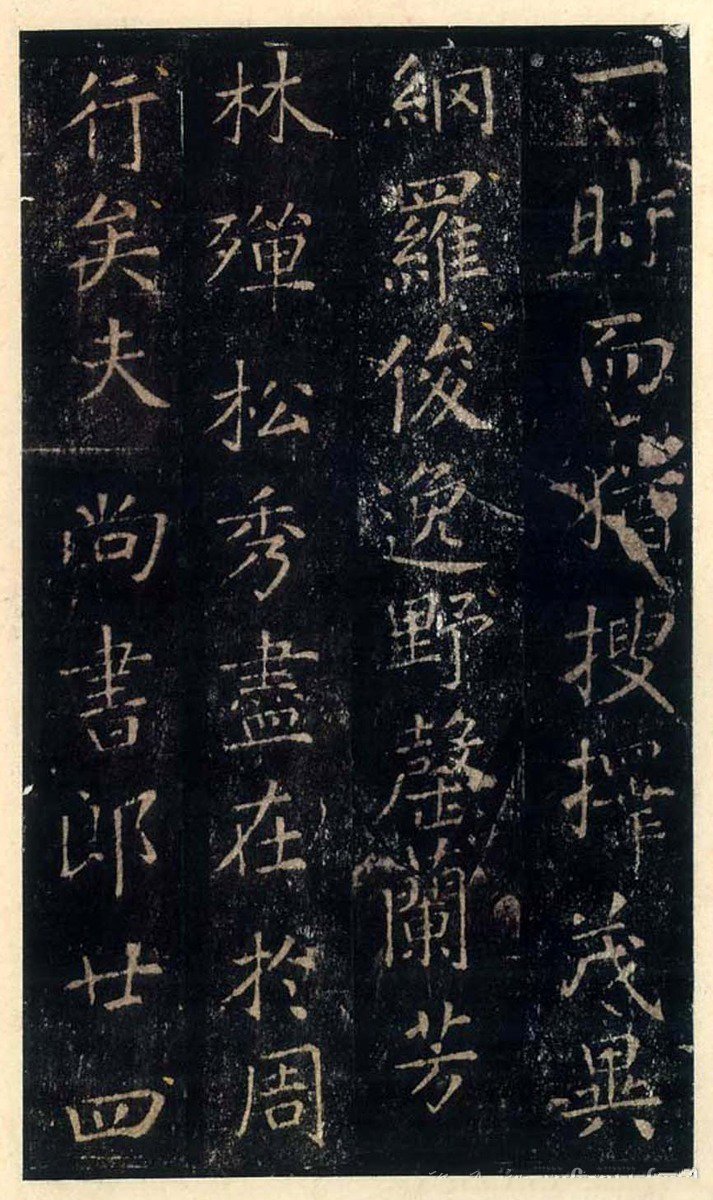 一時而猶搜擇茂異
網羅俊逸野罄蘭芳
林殫松秀盡在於周
行矣夫 尚書郎廿四